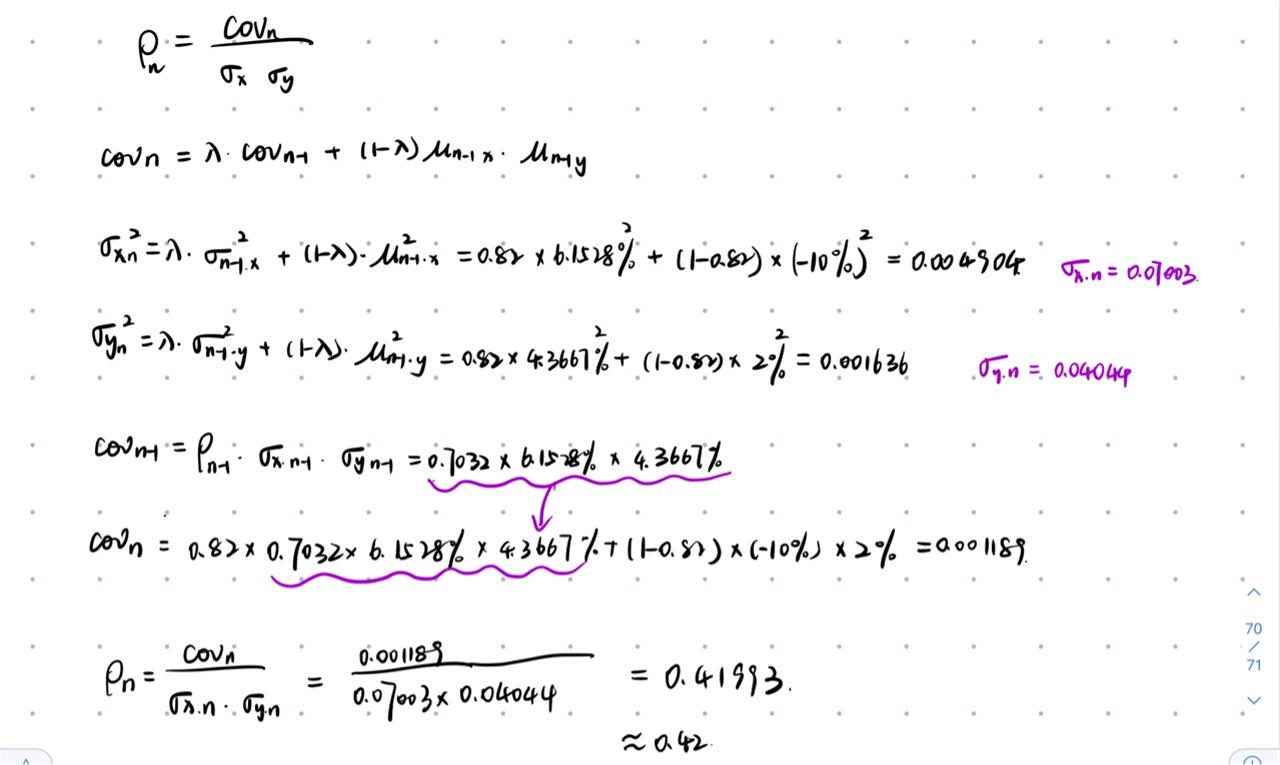 ρn = COVn / σx σy
COVn = λ · COVn-1 + (1-λ) μn-1 x · μn-1 y
σxn² = λ · σn-1·x² + (1-λ) · μn-1·x² = 0.82 × 6.1528%² + (1-0.82) × (-10%)² = 0.004904 σx.n = 0.07003.
σyn² = λ · σn-1·y² + (1-λ) · μn-1·y² = 0.82 × 4.3667%² + (1-0.82) × 2%² = 0.001636 σy.n = 0.04044
COVn-1 = ρn-1 · σx.n-1 · σy n-1 = 0.7032 × 6.1528% × 4.3667%
COVn = 0.82 × 0.7032 × 6.1528% × 4.3667% + (1-0.82) × (-10%) × 2% = 0.001189.
ρn = COVn / σx.n · σy.n = 0.001189 / 0.07003 × 0.04044 = 0.41993.
≈ 0.42.
70
/
71